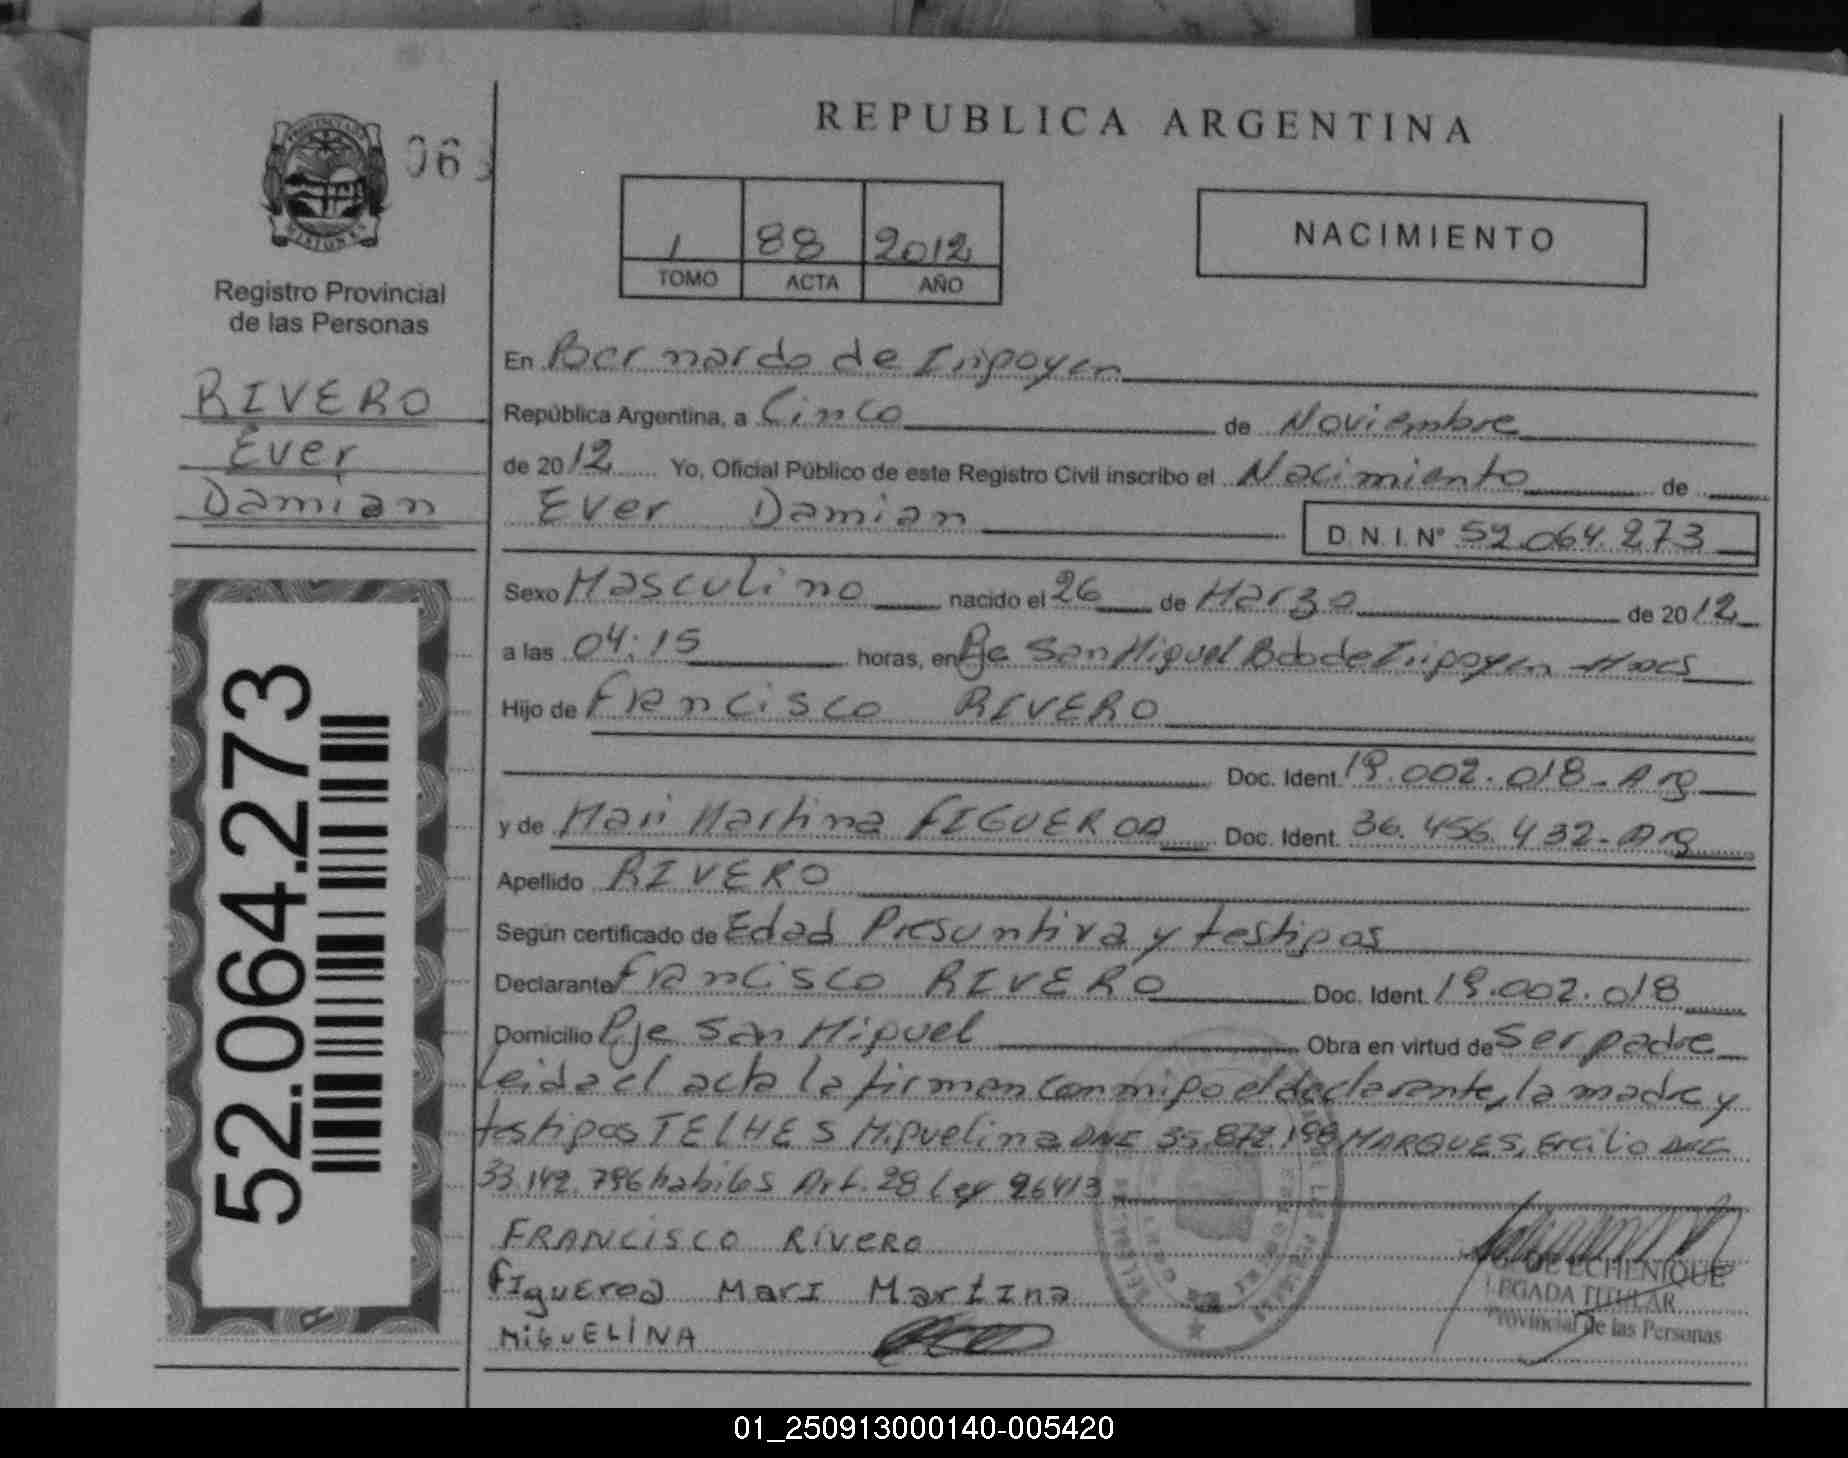 REPUBLICA ARGENTINA
PROVINCIA DE MISIONES
06
Registro Provincial
de las Personas
RIVERO
Ever
Damian
52.064.273
1 88 2012
TOMO ACTA AÑO
NACIMIENTO
En Bernardo de Irigoyen
República Argentina, a Cinco de Noviembre
de 2012 Yo, Oficial Público de este Registro Civil inscribo el Nacimiento de
Ever Damian D.N.I. Nº 52.064.273
Sexo Masculino nacido el 26 de Marzo de 2012
a las 04:15 horas, en Pje San Miguel Bdo de Irigoyen Mnes
Hijo de Francisco RIVERO
Doc. Ident. 19.002.018-Arg
y de Mari Martina FIGUEROA Doc. Ident. 36.456.432-Arg
Apellido RIVERO
Según certificado de Edad Presuntiva y testigos
Declarante Francisco RIVERO Doc. Ident. 19.002.018
Domicilio Pje San Miguel Obra en virtud de Ser padre
Leida el acta la firman conmigo el declarante, la madre y
testigos TELHES Miguelina DNI 35.872.198 MARQUES, Ercilio DNI
33.142.796 habiles Art. 28 Ley 26413
FRANCISCO RIVERO
Figueroa Mari Martina
MIGUELINA
DE ECHENIQUE
LEGADA TITULAR
Provincial de las Personas
01_250913000140-005420